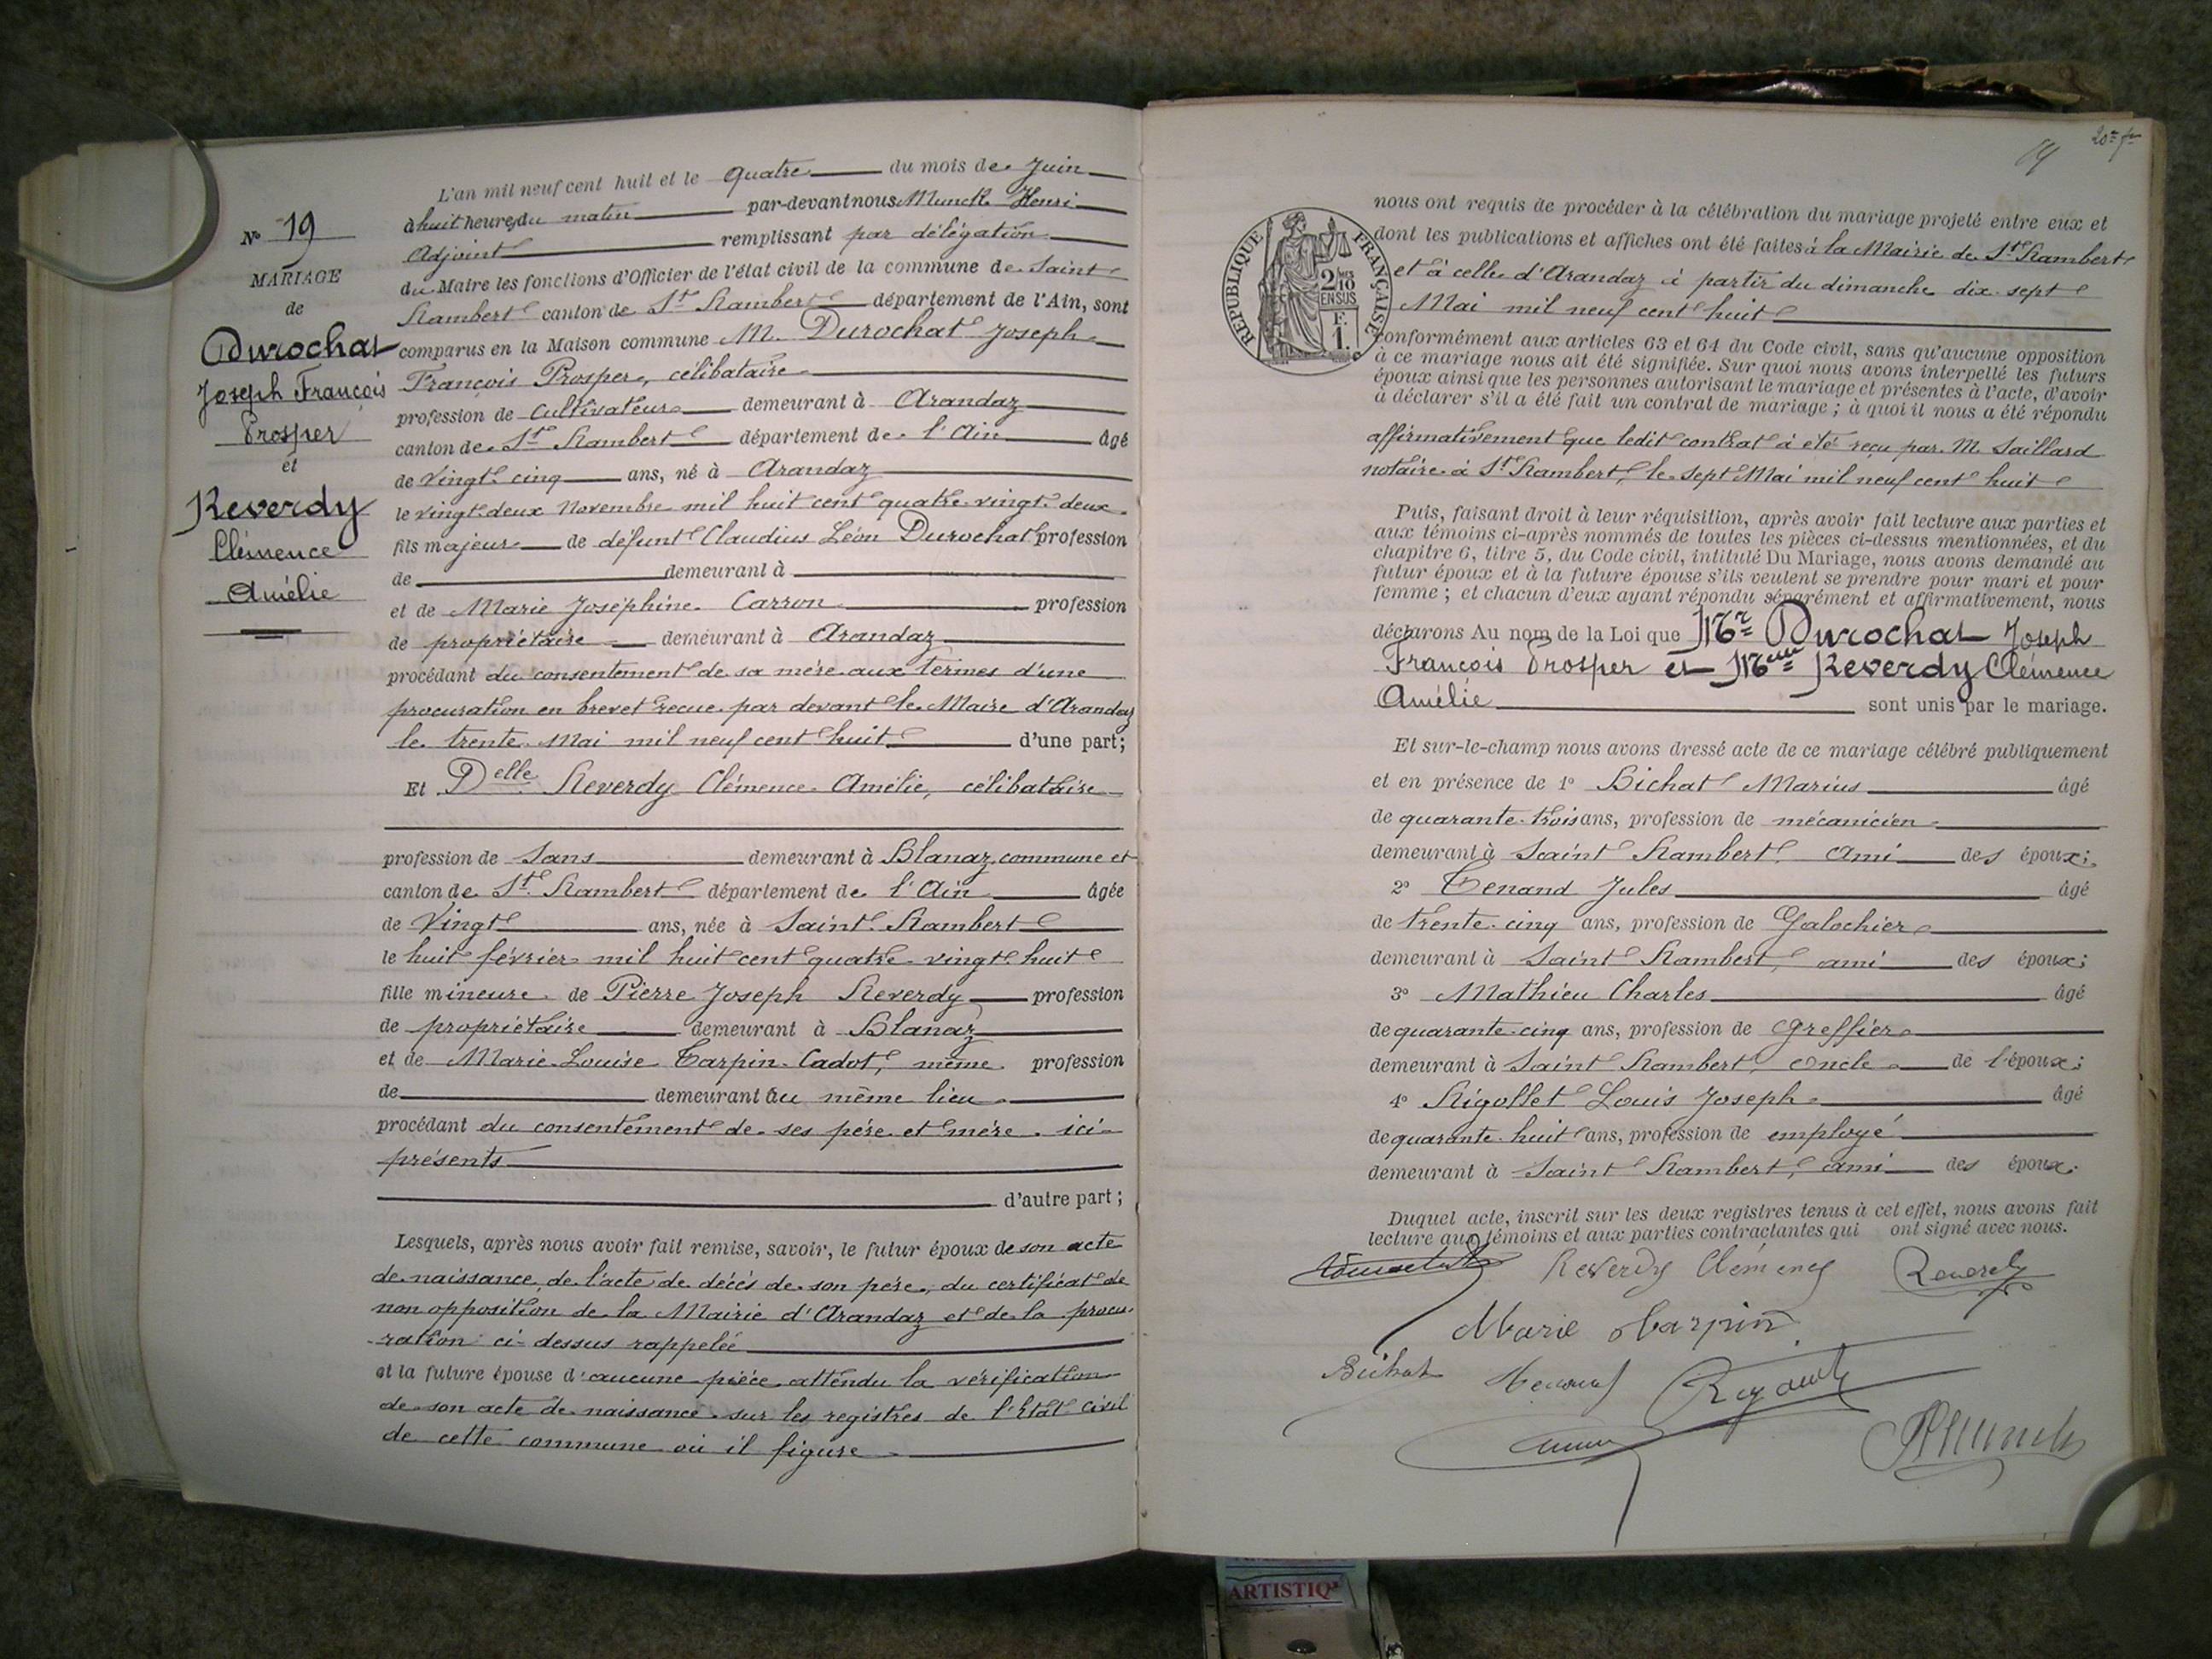 L'an mil neuf cent huit et le quatre du mois de Juin
à huit heures du matin par-devant nous Munck Henri
Adjoint remplissant par délégation
du Maire les fonctions d'Officier de l'état civil de la commune de Saint
Rambert canton de St Rambert département de l'Ain, sont
comparus en la Maison commune M. Durochat Joseph
François Prosper, célibataire
profession de Cultivateur demeurant à Arandaz
canton de St Rambert département de l'Ain âgé
de vingt cinq ans, né à Arandaz
le vingt deux Novembre mil huit cent quatre vingt deux
fils majeur de défunt Claudius Léon Durochat profession
de demeurant à
et de Marie Joséphine Carron profession
de propriétaire demeurant à Arandaz
procédant du consentement de sa mère aux termes d'une
procuration en brevet reçue par devant le Maire d'Arandaz
le trente Mai mil neuf cent huit d'une part;
Et Delle Reverdy Clémence Amélie, célibataire
profession de Sans demeurant à Blanaz, commune et
canton de St Rambert département de l'Ain âgée
de Vingt ans, née à Saint Rambert
le huit février mil huit cent quatre vingt huit
fille mineure de Pierre Joseph Reverdy profession
de propriétaire demeurant à Blanaz
et de Marie Louise Tarpin Cadot, même profession
de demeurant au même lieu
procédant du consentement de ses père et mère ici
présents
d'autre part;
Lesquels, après nous avoir fait remise, savoir, le futur époux de son acte
de naissance, de l'acte de décès de son père, du certificat de
non opposition de la Mairie d'Arandaz et de la procu-
ration ci-dessus rappelée
et la future épouse d'aucune pièce attendu la vérification
de son acte de naissance sur les registres de l'Etat civil
de cette commune où il figure
No 19
MARIAGE
de
Durochat
Joseph François
Prosper
et
Reverdy
Clémence
Amélie
19
RÉPUBLIQUE FRANÇAISE
2/10 EN SUS
F. 1.
nous ont requis de procéder à la célébration du mariage projeté entre eux et
dont les publications et affiches ont été faites à la Mairie de St Rambert
et à celle d'Arandaz à partir du dimanche dix sept
Mai mil neuf cent huit
conformément aux articles 63 et 64 du Code civil, sans qu'aucune opposition
à ce mariage nous ait été signifiée. Sur quoi nous avons interpellé les futurs
époux ainsi que les personnes autorisant le mariage et présentes à l'acte, d'avoir
à déclarer s'il a été fait un contrat de mariage; à quoi il nous a été répondu
affirmativement que ledit contrat a été reçu par M. Saillard
notaire à St Rambert, le sept Mai mil neuf cent huit
Puis, faisant droit à leur réquisition, après avoir fait lecture aux parties et
aux témoins ci-après nommés de toutes les pièces ci-dessus mentionnées, et du
chapitre 6, titre 5, du Code civil, intitulé Du Mariage, nous avons demandé au
futur époux et à la future épouse s'ils veulent se prendre pour mari et pour
femme; et chacun d'eux ayant répondu séparément et affirmativement, nous
déclarons Au nom de la Loi que Mr Durochat Joseph
François Prosper et Melle Reverdy Clémence
Amélie sont unis par le mariage.
Et sur-le-champ nous avons dressé acte de ce mariage célébré publiquement
et en présence de 1o Bichat Marius âgé
de quarante-trois ans, profession de mécanicien
demeurant à Saint Rambert, ami des époux;
2o Tenand Jules âgé
de trente cinq ans, profession de Galochier
demeurant à Saint Rambert, ami des époux;
3o Mathieu Charles âgé
de quarante-cinq ans, profession de Greffier
demeurant à Saint Rambert, oncle de l'époux;
4o Rigollet Louis Joseph âgé
de quarante huit ans, profession de employé
demeurant à Saint Rambert, ami des époux.
Duquel acte, inscrit sur les deux registres tenus à cet effet, nous avons fait
lecture aux témoins et aux parties contractantes qui ont signé avec nous.
Reverdy Clémence Reverdy
Marie Tarpin
Bichat Tenand
Munck
ARTISTIQ